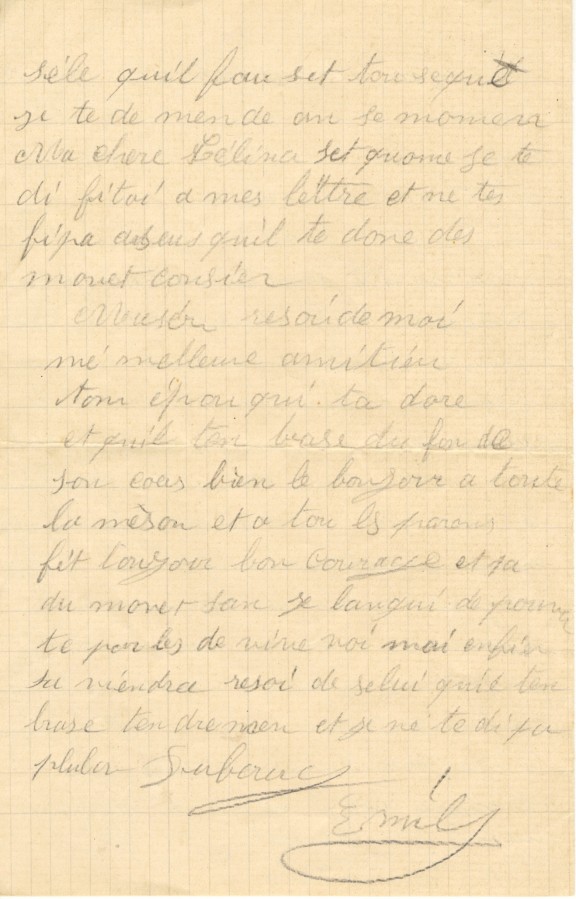 séle quil fau set tou sequil
je te de mende an se momen
Ma chere Lélina set quome je te
di fitoi a mes lettre et ne tes
fipa quil te done des
movet consier
resoi de moi
mé melleure amitieu
tom épou qui ta dore
et quil ten brase du fon de
son coeur bien le bonjour a toute
la méson et a tou les parens
fét toujour bon couracge et pa
du movet san je langui de pouvoir
te parler de vive voi mai enfin
sa viendra resoi de selui quil ten
brase tendremen et je ne te di pa
plulon
Emil